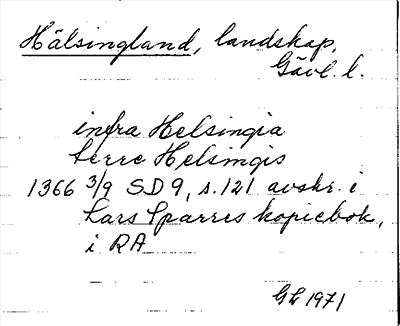 Hälsingland, landskap,
Gävl. l.
infra Helsingia
terre Helsingis
1366 3/9 SD 9, s. 121 avskr. i
Lars Sparres kopiebok,
i RA
GL 1971